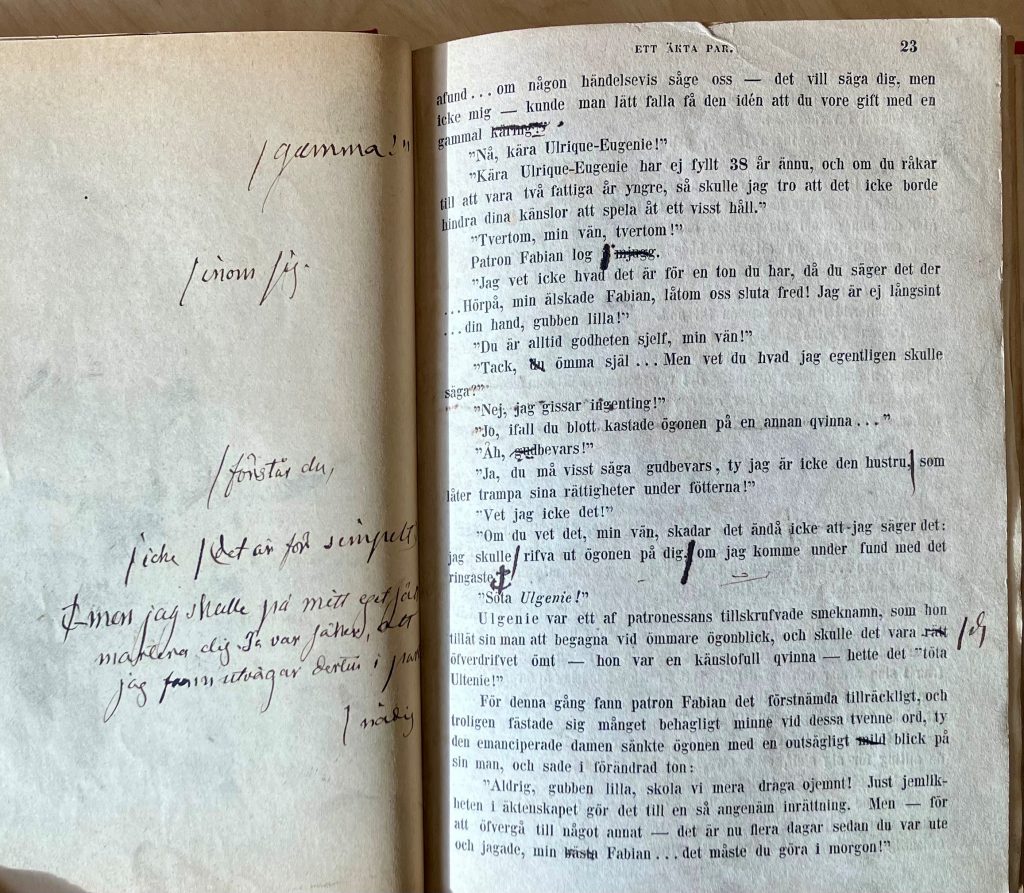 /gæmma!"
/inom sig.
/förstår du,
/icke /det är för simpelt,
men jag skulle på mitt eget sätt
martera dig. Ja var säker, att
jag utvägar dertill i
/nådig
ETT ÄKTA PAR. 23
afund . . . om någon händelsevis såge oss — det vill säga dig, men
icke mig — kunde man lätt falla få den idén att du vore gift med en
gammal käring?"
"Nå, kära Ulrique-Eugenie!"
"Kära Ulrique-Eugenie har ej fyllt 38 år ännu, och om du råkar
till att vara två fattiga år yngre, så skulle jag tro att det icke borde
hindra dina känslor att spela åt ett visst håll."
"Tvertom, min vän, tvertom!"
Patron Fabian log mjugg.
"Jag vet icke hvad det är för en ton du har, då du säger det der
. . . Hörpå, min älskade Fabian, låtom oss sluta fred! Jag är ej långsint
. . . din hand, gubben lilla!"
"Du är alltid godheten sjelf, min vän!"
"Tack, du ömma själ . . . Men vet du hvad jag egentligen skulle
säga?"
"Nej, jag gissar ingenting!"
"Jo, ifall du blott kastade ögonen på en annan qvinna . . ."
"Åh, gudbevars!"
"Ja, du må visst säga gudbevars, ty jag är icke den hustru, som
låter trampa sina rättigheter under fötterna!"
"Vet jag icke det!"
"Om du vet det, min vän, skadar det ändå icke att jag säger det:
jag skulle rifva ut ögonen på dig, om jag komme under fund med det
ringaste
"Söta Ulgenie!"
Ulgenie var ett af patronessans tillskrufvade smeknamn, som hon
tillät sin man att begagna vid ömmare ögonblick, och skulle det vara rätt /ej
öfverdrifvet ömt — hon var en känslofull qvinna — hette det "töta
Ultenie!"
För denna gång fann patron Fabian det förstnämda tillräckligt, och
troligen fästade sig månget behagligt minne vid dessa tvenne ord, ty
den emanciperade damen sänkte ögonen med en outsägligt mild blick på
sin man, och sade i förändrad ton:
"Aldrig, gubben lilla, skola vi mera draga ojemnt! Just jemlik-
heten i äktenskapet gör det till en så angenäm inrättning. Men — för
att öfvergå till något annat — det är nu flera dagar sedan du var ute
och jagade, min bästa Fabian . . . det måste du göra i morgon!"